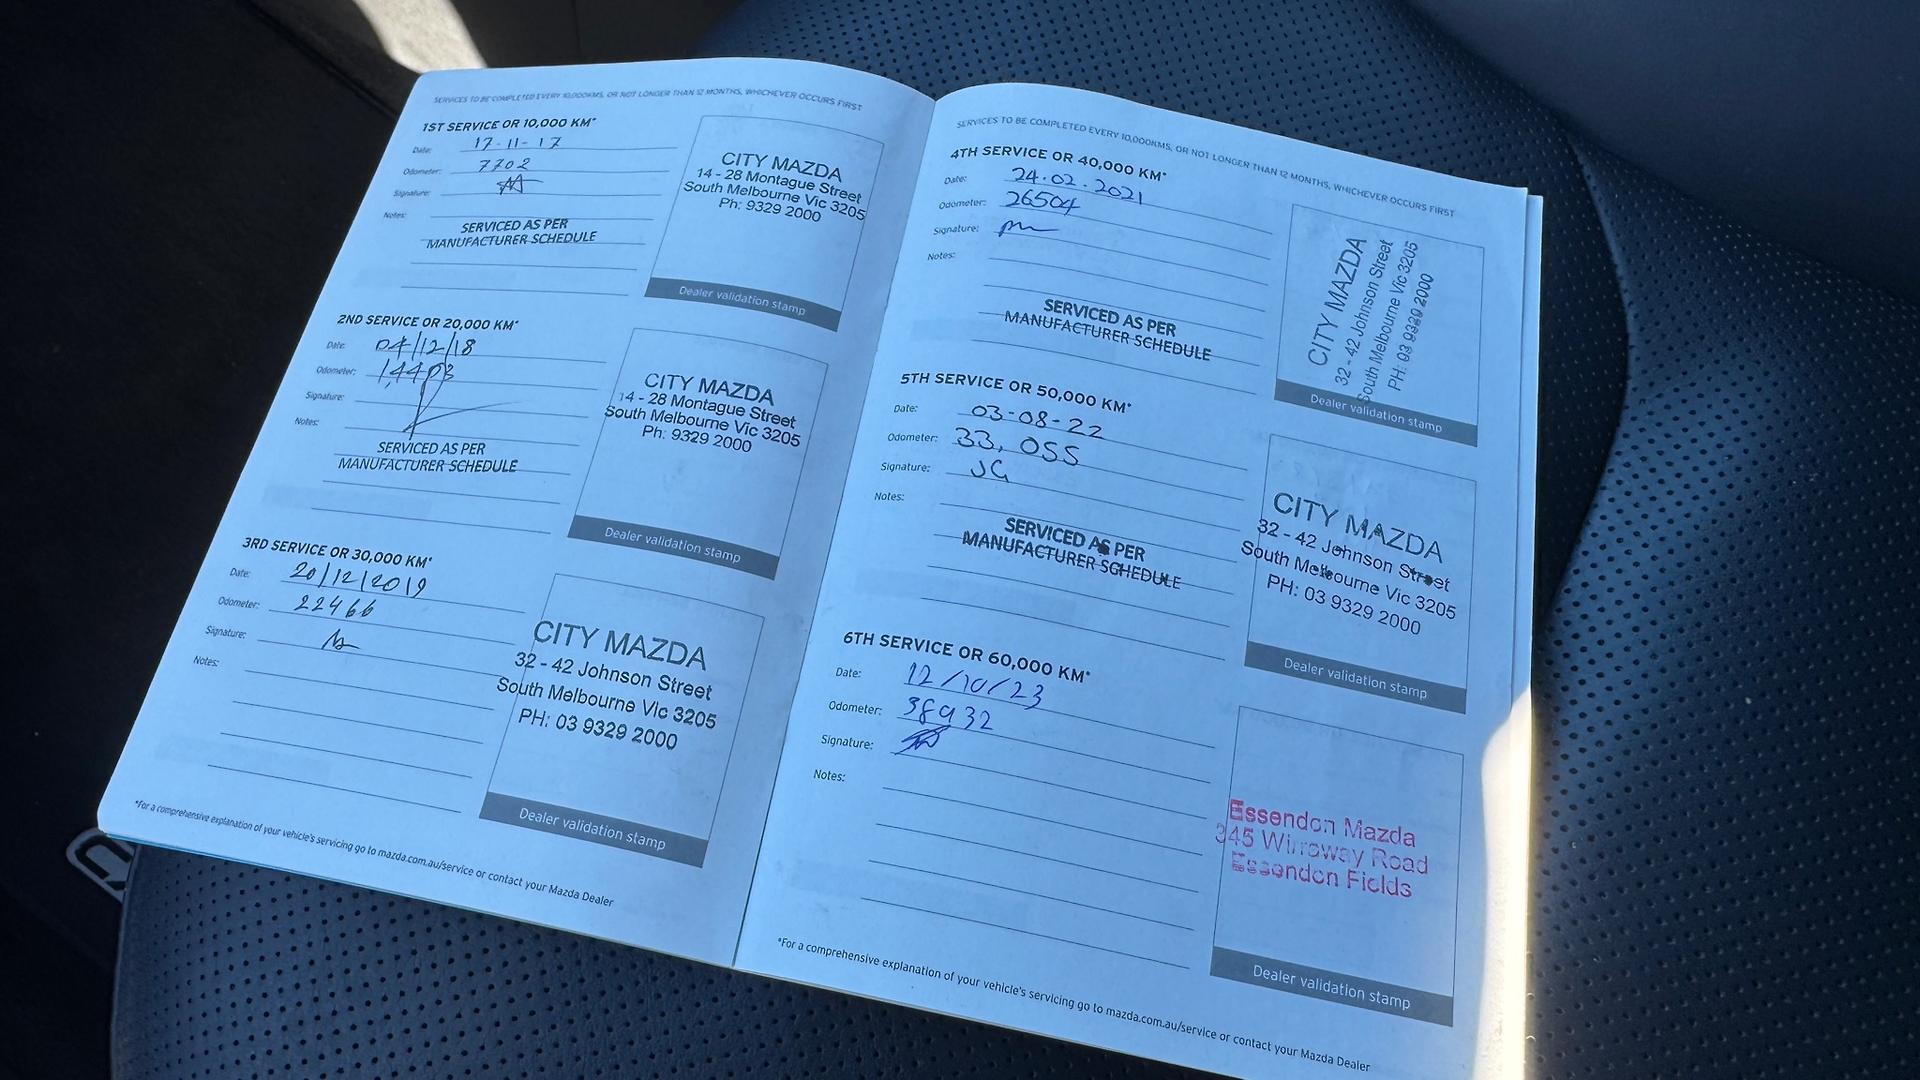 SERVICES TO BE COMPLETED EVERY 10,000KMS, OR NOT LONGER THAN 12 MONTHS, WHICHEVER OCCURS FIRST
1ST SERVICE OR 10,000 KM*
Date: 17-11-17
Odometer: 7702
Signature:
Notes:
SERVICED AS PER
MANUFACTURER SCHEDULE
CITY MAZDA
14 - 28 Montague Street
South Melbourne Vic 3205
Ph: 9329 2000
Dealer validation stamp
2ND SERVICE OR 20,000 KM*
Date: 04/12/18
Odometer: 14403
Signature:
Notes:
SERVICED AS PER
MANUFACTURER SCHEDULE
CITY MAZDA
14 - 28 Montague Street
South Melbourne Vic 3205
Ph: 9329 2000
Dealer validation stamp
3RD SERVICE OR 30,000 KM*
Date: 20/12/2019
Odometer: 22466
Signature:
Notes:
CITY MAZDA
32 - 42 Johnson Street
South Melbourne Vic 3205
PH: 03 9329 2000
Dealer validation stamp
*For a comprehensive explanation of your vehicle's servicing go to mazda.com.au/service or contact your Mazda Dealer
SERVICES TO BE COMPLETED EVERY 10,000KMS, OR NOT LONGER THAN 12 MONTHS, WHICHEVER OCCURS FIRST
4TH SERVICE OR 40,000 KM*
Date: 24.02.2021
Odometer: 26504
Signature:
Notes:
SERVICED AS PER
MANUFACTURER SCHEDULE
CITY MAZDA
32 - 42 Johnson Street
South Melbourne Vic 3205
PH: 03 9329 2000
Dealer validation stamp
5TH SERVICE OR 50,000 KM*
Date: 03-08-22
Odometer: 33,055
Signature: JG
Notes:
SERVICED AS PER
MANUFACTURER SCHEDULE
CITY MAZDA
32 - 42 Johnson Street
South Melbourne Vic 3205
PH: 03 9329 2000
Dealer validation stamp
6TH SERVICE OR 60,000 KM*
Date: 12/10/23
Odometer: 38932
Signature:
Notes:
Essendon Mazda
345 Wirraway Road
Essendon Fields
Dealer validation stamp
*For a comprehensive explanation of your vehicle's servicing go to mazda.com.au/service or contact your Mazda Dealer